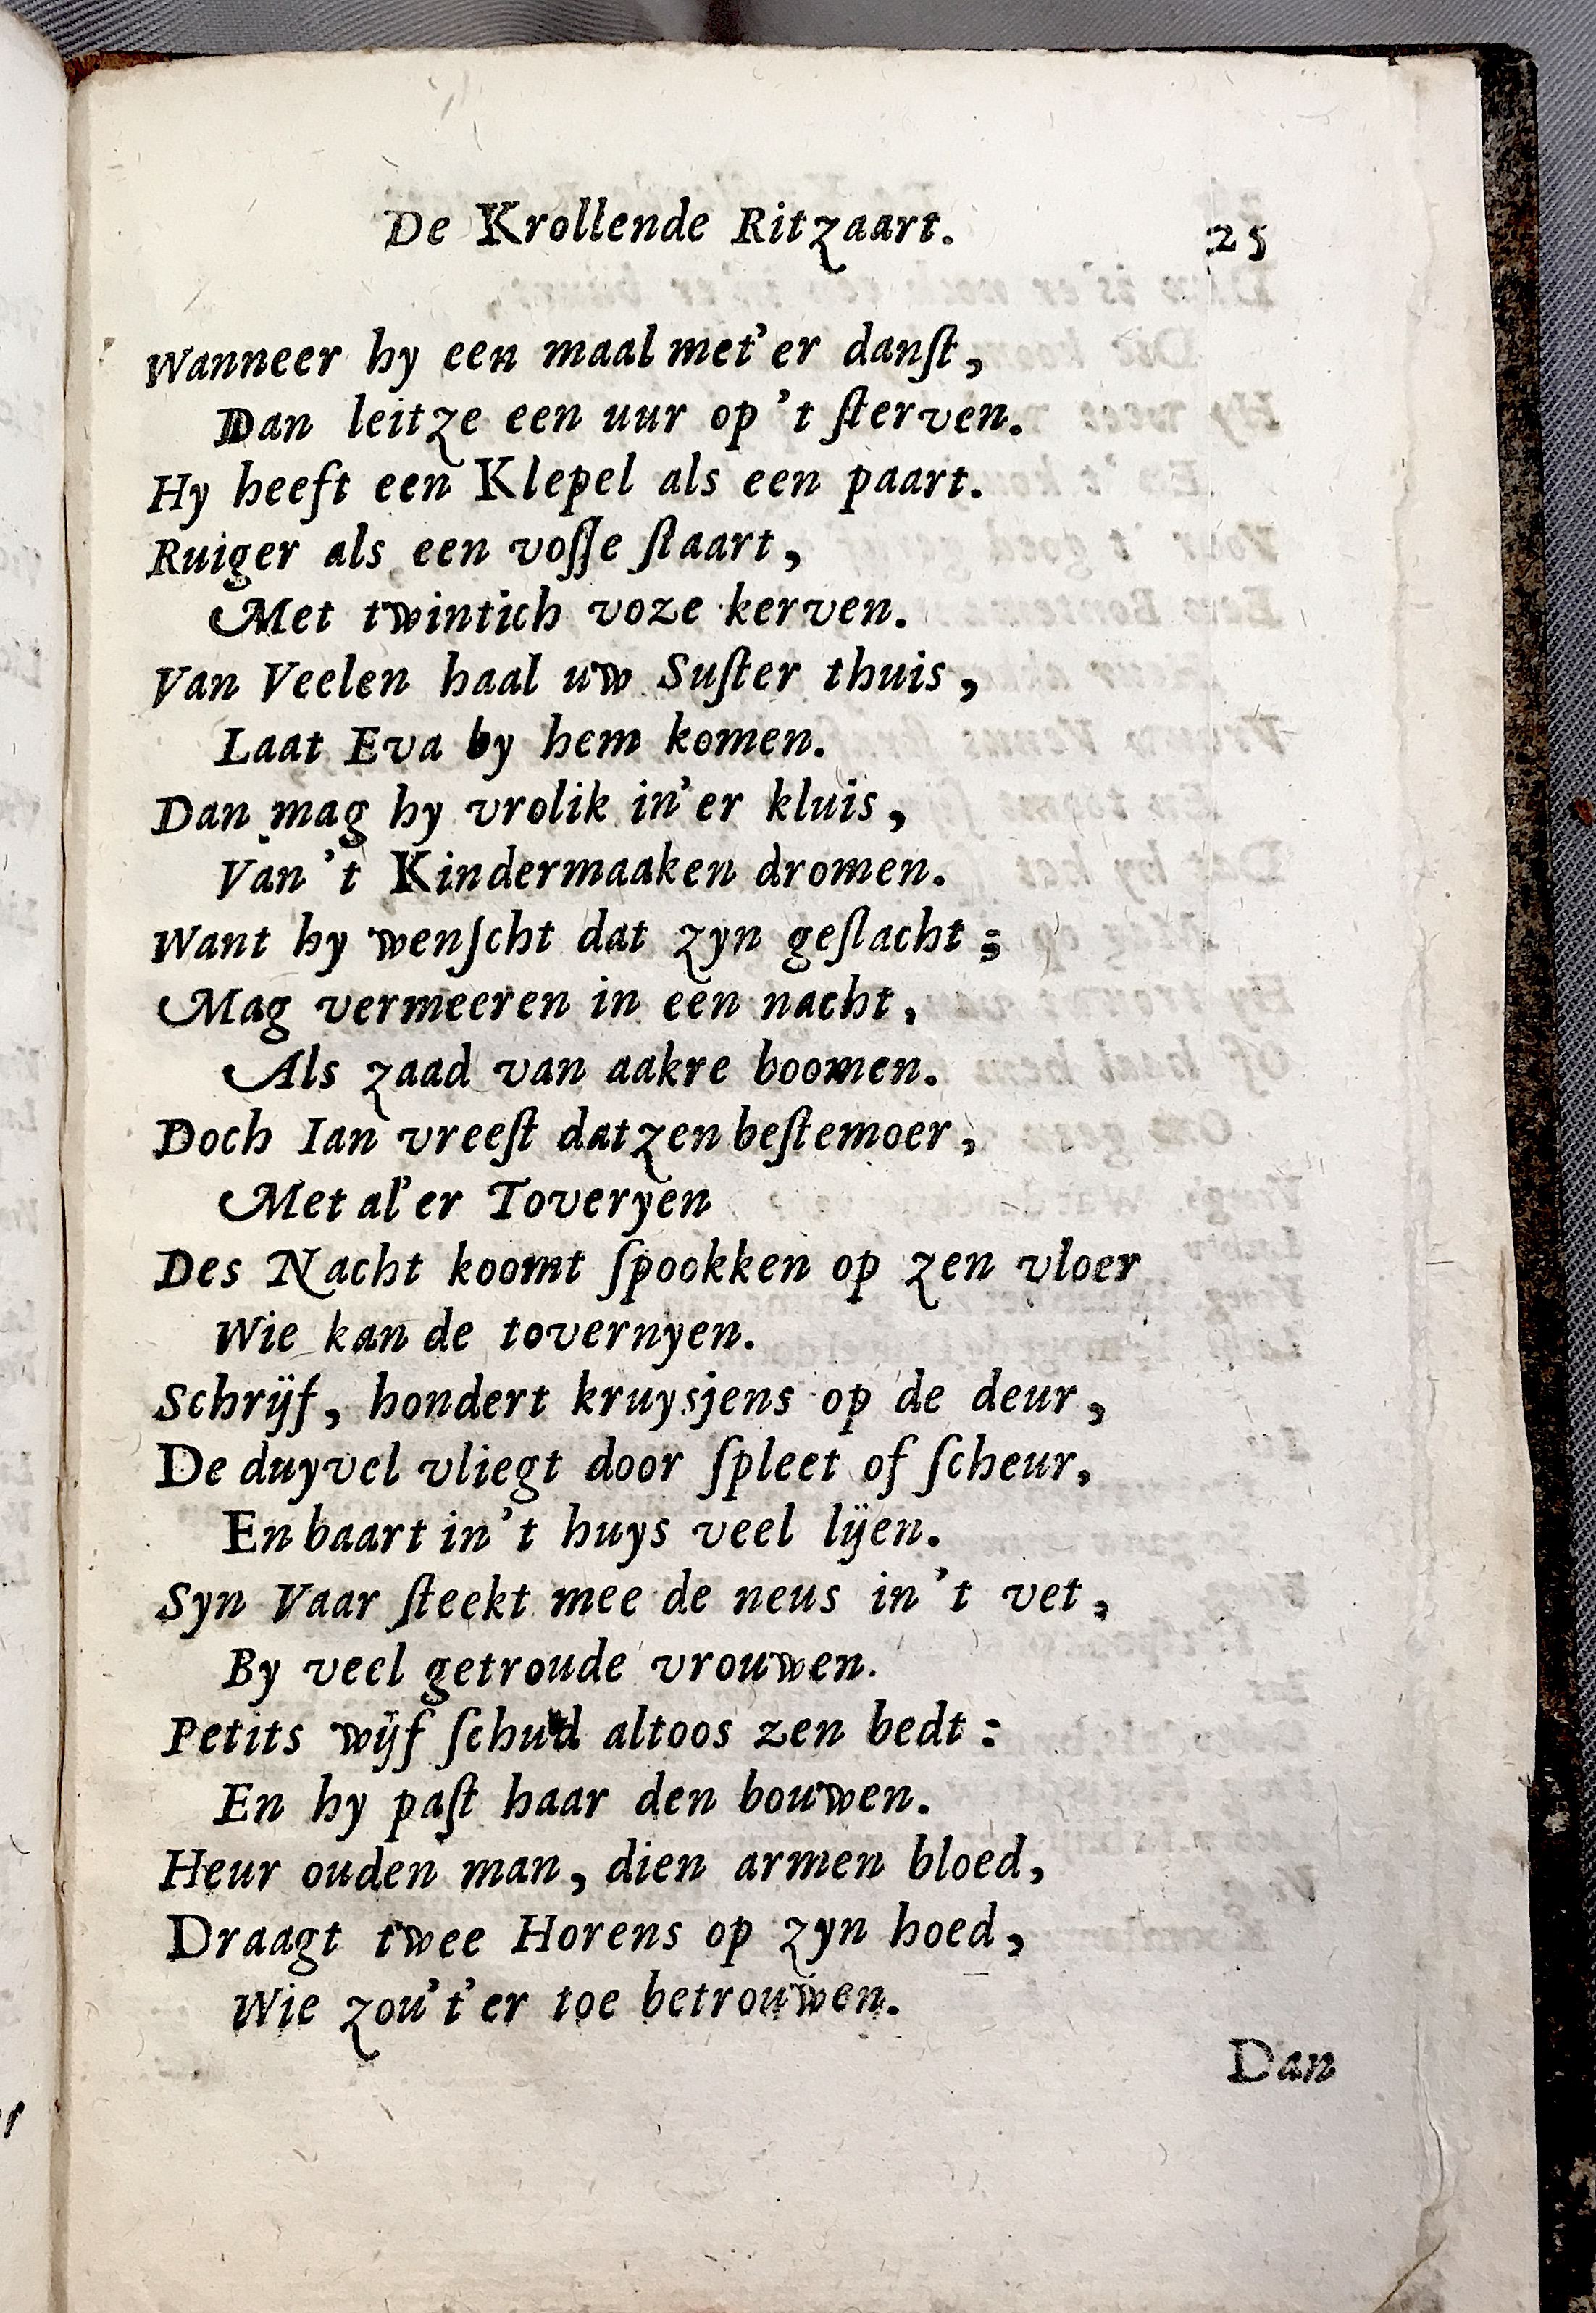 De Krollende Ritzaart. 25
Wanneer hy een maal met'er danſt,
Dan leitze een uur op 't ſterven.
Hy heeft een Klepel als een paart.
Ruiger als een voſſe ſtaart,
Met twintich voze kerven.
Van Veelen haal uw Suſter thuis,
Laat Eva by hem komen.
Dan mag hy vrolik in'er kluis,
Van 't Kindermaaken dromen.
Want hy wenſcht dat zyn geſlacht;
Mag vermeeren in een nacht,
Als zaad van aakre boomen.
Doch Ian vreeſt datzen beſtemoer,
Met al'er Toveryen
Des Nacht koomt ſpookken op zen vloer
Wie kan de tovernyen.
Schrijf, hondert kruysjens op de deur,
De duyvel vliegt door ſpleet of ſcheur,
En baart in 't huys veel lijen.
Syn Vaar ſteekt mee de neus in 't vet,
By veel getroude vrouwen.
Petits wijf ſchud altoos zen bedt:
En hy paſt haar den bouwen.
Heur ouden man, dien armen bloed,
Draagt twee Horens op zyn hoed,
Wie zou't'er toe betrouwen.
Dan